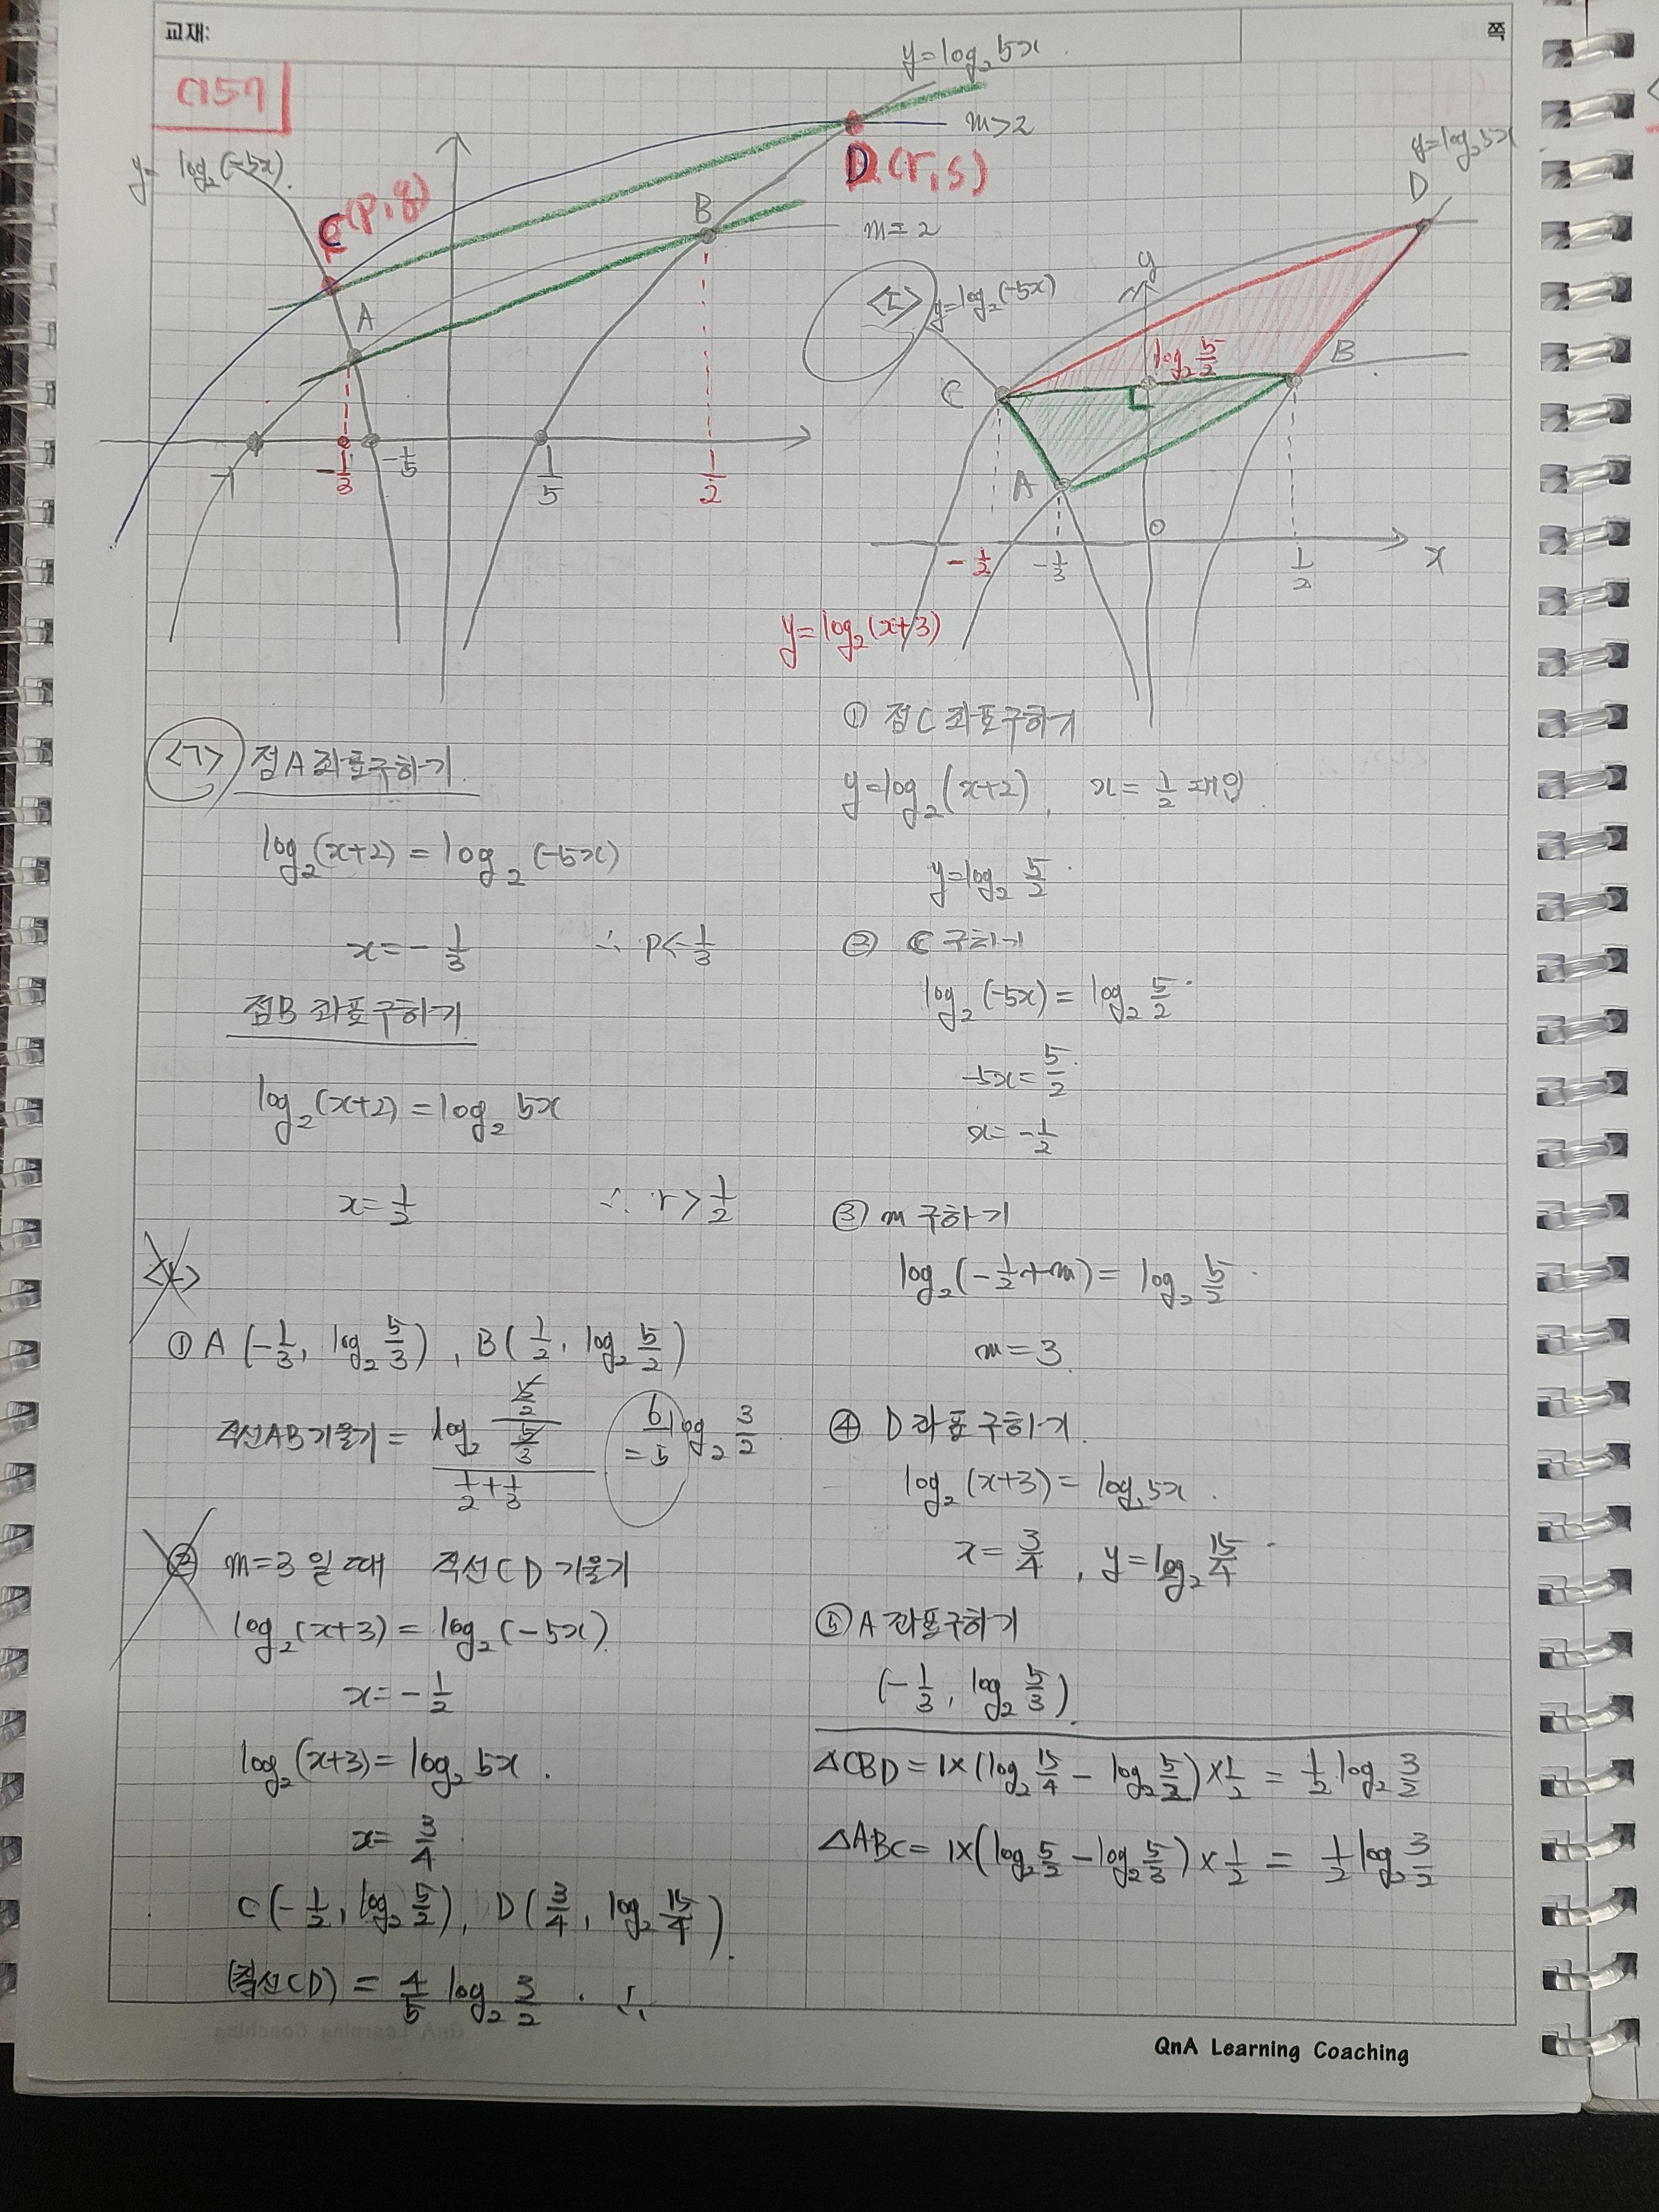 교재:
쪽
0757
y=log₂5x
y=log₂(-5x)
m>2
C(p,q)
D(r,s)
B
m=2
A
-1
-1/3
-1/5
1/5
1/2
y=log₂5x
D
y
<ㄷ>
y=log₂(-5x)
log₂ 5/2
B
C
A
O
-1/2
-1/3
1/2
x
y=log₂(x+3)
<ㄱ> 점A 좌표구하기
log₂(x+2)=log₂(-5x)
x=-1/3 ∴ p<-1/3
점B 좌표구하기
log₂(x+2)=log₂5x
x=1/2 ∴ r>1/2
<ㄴ>
① A(-1/3, log₂ 5/3), B(1/2, log₂ 5/2)
직선AB기울기 = (log₂ (5/2)/(5/3))/(1/2+1/3) = 6/5 log₂ 3/2
② m=3일 때 직선CD기울기
log₂(x+3)=log₂(-5x)
x=-1/2
log₂(x+3)=log₂5x.
x=3/4
C(-1/2, log₂ 5/2), D(3/4, log₂ 15/4).
(직선CD) = 4/5 log₂ 3/2 . ∴
① 점C 좌표구하기
y=log₂(x+2), x=1/2 대입
y=log₂ 5/2
② C 구하기
log₂(-5x)=log₂ 5/2
-5x=5/2
x=-1/2
③ m 구하기
log₂(-1/2+m)=log₂ 5/2
m=3
④ D좌표구하기.
log₂(x+3)=log₂5x.
x=3/4, y=log₂ 15/4
⑤ A 좌표구하기
(-1/3, log₂ 5/3).
△CBD=1×(log₂ 15/4 - log₂ 5/2)×1/2 = 1/2 log₂ 3/2
△ABC=1×(log₂ 5/2 - log₂ 5/3)×1/2 = 1/2 log₂ 3/2
QnA Learning Coaching